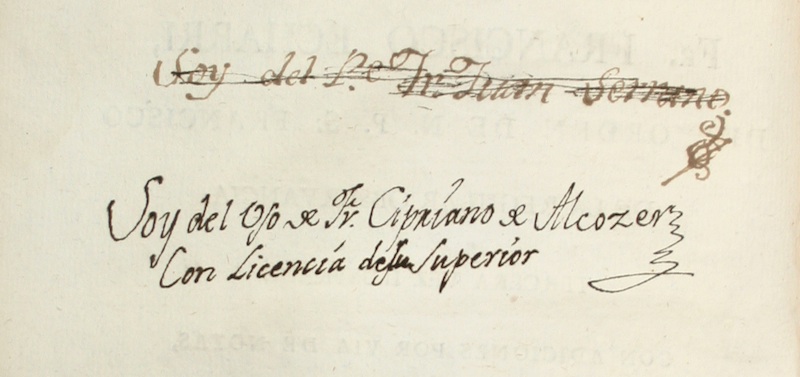 Soy del P.e Fr. Juan Serrano.
Soy del Uso de Fr. Cipriano de Alcozer
Con Licencia de su Superior